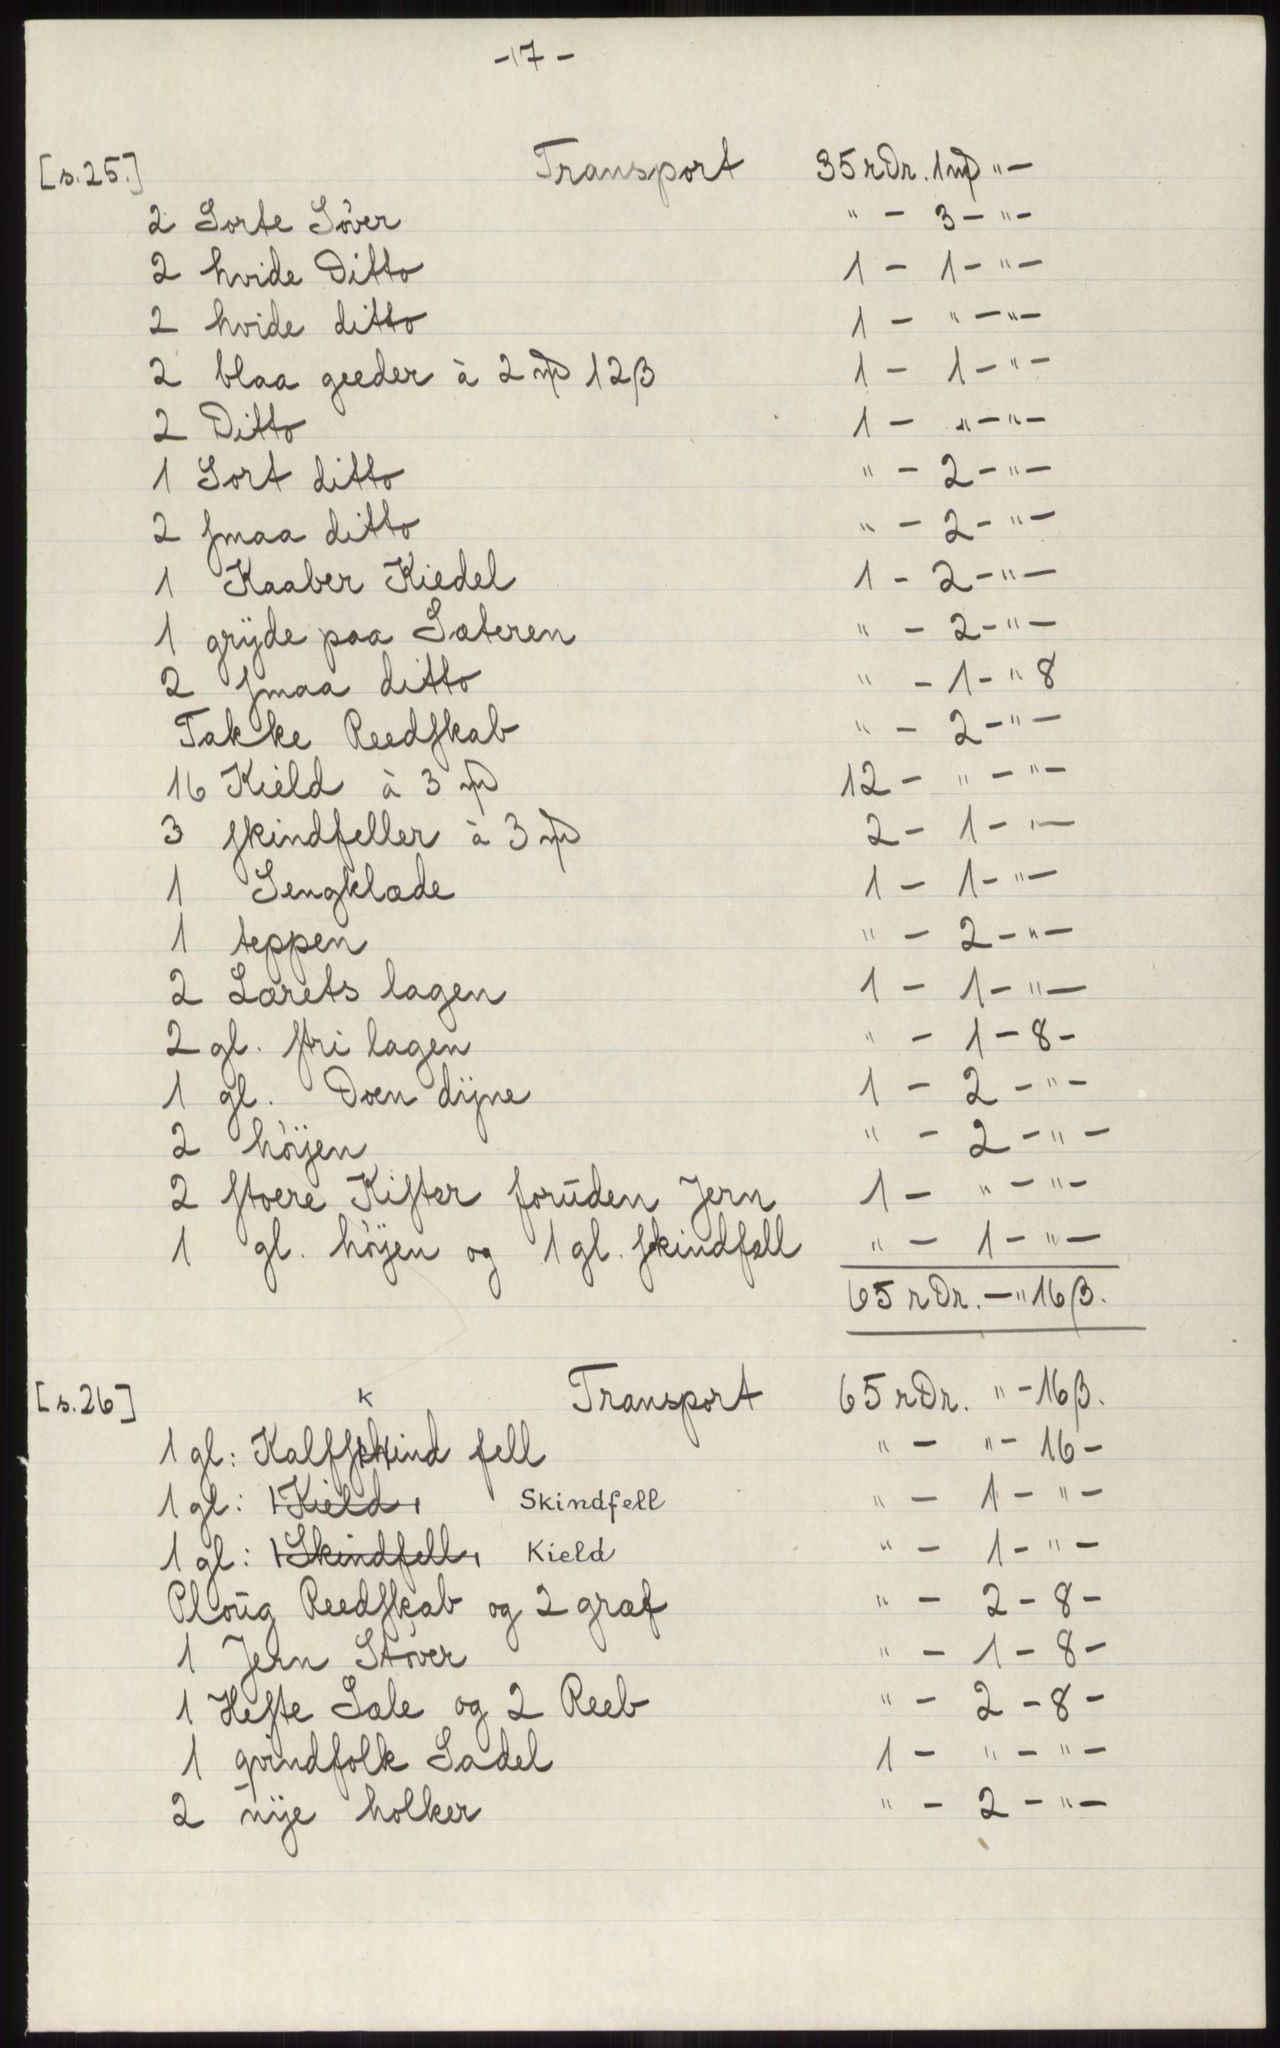 -17-
[s.25.] Transport 35 rDr. 1 mƿ " -
2 Sorte Söver " - 3 - " -
2 hvide Ditto 1 - 1 - " -
2 hvide ditto 1 - " - " -
2 blaa geeder à 2 mƿ 12 β 1 - 1 - " -
2 Ditto 1 - " - " -
1 Sort ditto " - 2 - " -
2 smaa ditto " - 2 - " -
1 Kaaber Kiedel 1 - 2 - " -
1 grÿde paa Sæteren " - 2 - " -
2 smaa ditto " - 1 - " 8
Takke Reedskab " - 2 - " -
16 Kield à 3 mƿ 12 - " - " -
3 skindfeller à 3 mƿ 2 - 1 - " -
1 Sengklæde 1 - 1 - " -
1 teppen " - 2 - " -
2 Lærets lagen 1 - 1 - " -
2 gl. stri lagen " - 1 - 8 -
1 gl. Doen dÿne 1 - 2 - " -
2 höÿen " - 2 - " -
2 stoere Kister foruden Jern 1 - " - " -
1 gl. höÿen og 1 gl. skindfæll " - 1 - " -
65 rDr. - " 16 β.
[s.26] Transport 65 rDr. " - 16 β.
k
1 gl: Kalfskind fell " - " - 16 -
1 gl: Kield Skindfell " - 1 - " -
1 gl: Skindfell Kield " - 1 - " -
Ploug Reedskab og 2 græf " - 2 - 8 -
1 Jern Stöver " - 1 - 8 -
1 Heste Sæle og 2 Reeb " - 2 - 8 -
1 qvindfolk Sadel 1 - " - " -
2 nÿe holker " - 2 - " -